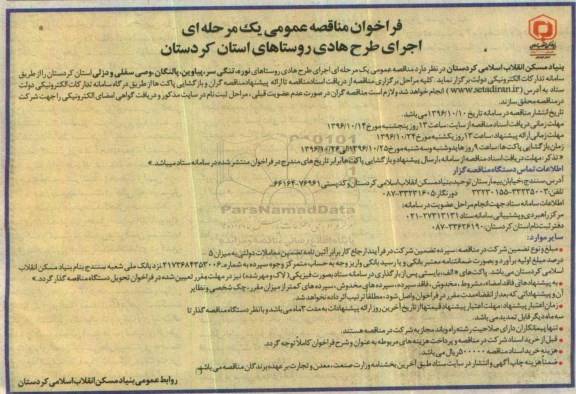 فراخوان مناقصه عمومی یک مرحله ای
اجرای طرح هادی روستاهای استان کردستان
بنیاد مسکن انقلاب اسلامی کردستان در نظر دارد مناقصه عمومی یک مرحله ای اجرای طرح هادی روستاهای نوره، تنگی سر، پیاوین، پالنگان، وصی سفلی و دزلی استان کردستان را از طریق
سامانه تدارکات الکترونیکی دولت برگزار نماید. کلیه مراحل برگزاری مناقصه از دریافت اسناد مناقصه تا ارائه پیشنهاد مناقصه گران و بازگشایی پاکت ها از طریق درگاه سامانه تدارکات الکترونیکی دولت
ستاد به آدرس (www.setadiran.ir) انجام خواهد شد و لازم است مناقصه گران در صورت عدم عضویت قبلی، مراحل ثبت نام در سایت مذکور و دریافت گواهی امضای الکترونیکی را جهت شرکت
در مناقصه محقق سازند.
تاریخ انتشار مناقصه در سامانه تاریخ ۱۳۹۶/۱۰/۱۰ می باشد.
مهلت زمانی دریافت اسناد مناقصه از سایت: ساعت ۱۳ روز پنجشنبه مورخ ۱۳۹۶/۱۰/۱۴
مهلت زمانی ارائه پیشنهاد: ساعت ۱۳ روز یکشنبه مورخ ۱۳۹۶/۱۰/۲۴
زمان بازگشایی پاکت ها: ساعت ۸ روز های دوشنبه و سه شنبه مورخ ۱۳۹۶/۱۰/۲۵ الی ۱۳۹۶/۱۰/۲۶
« تذکر: مهلت دریافت اسناد مناقصه از سامانه، ارسال پیشنهاد و بازگشایی پاکت ها برابر تاریخ های مندرج در فراخوان منتشر شده در سامانه ستاد میباشد.»
اطلاعات تماس دستگاه مناقصه گزار
آدرس: سنندج، خیابان بیمارستان توحید، بنیاد مسکن انقلاب اسلامی کردستان و کدپستی ۷۶۹۶۱-۶۶۱۶۴
تلفن: ۳۳۲۳۵۰۰۳-۳۳۲۳۰۱۵۵ دورنگار: ۳۳۲۳۱۶۰۵-۰۸۷
اطلاعات سامانه ستاد جهت انجام مراحل عضویت در سامانه:
مرکز راهبری و پشتیبانی سامانه ستاد ۲۷۳۱۳۱۳۱-۰۲۱
دفتر ثبت نام استان کردستان: ۳۳۶۲۶۱۹۰-۰۸۷
سایر موارد:
• مبلغ و نوع تضمین شرکت در مناقصه: سپرده تضمین شرکت در فرآیند ارجاع کار برابر آئین نامه تضمین معاملات دولتی به میزان ۵
درصد مبلغ اولیه برآورد و بصورت ضمانتنامه معتبر بانکی و یا رسید بانکی واریز وجه به حساب متمرکز وجوه سپرده به شماره ۲۱۷۳۶۸۴۳۵۳۰۰۶ نزد بانک ملی شعبه سنندج بنام بنیاد مسکن انقلاب
اسلامی کردستان می باشد. پاکت های «الف» بایستی پس از بارگذاری در سامانه ستاد بصورت فیزیکی (لاک و مهر شده) نیز در مهلت مقرر تعیین شده در فراخوان تحویل دستگاه مناقصه گذار گردد.»
• به پیشنهادهای فاقد امضاء، مشروط، مخدوش، فاقد سپرده، سپرده های مخدوش، سپرده های کمتر از میزان مقرر، چک شخصی و نظایر
آن و پیشنهاداتی که بعد از انقضاء مدت مقرر در فراخوان واصل شود، مطلقا ترتیب اثر داده نخواهد شد.
• زمان اعتبار پیشنهاد: مهلت اعتبار پیشنهاد قیمتها از تاریخ آخرین روز ارائه پیشنهادات به مدت ۳ ماه می باشد و با نظر دستگاه مناقصه گذار تا
سه ماه دیگر قابل تمدید می باشد.
• تنها پیمانکاران دارای صلاحیت رشته راه و باند مجاز به شرکت در مناقصه هستند.
• قبل از خرید اسناد شرکت در مناقصه و پرداخت هزینه های مربوطه به عنوان و شرح فراخوان کاملاً توجه گردد.
• هزینه خرید اسناد مناقصه ۵۰۰۰۰۰ ریال می باشد.
• ضمناً هزینه چاپ آگهی و انتشار در سایت ستاد طبق آخرین بخشنامه وزارت صنعت، معدن و تجارت بر عهده برندگان مناقصه می باشد.
روابط عمومی بنیاد مسکن انقلاب اسلامی کردستان
ParsNamadData